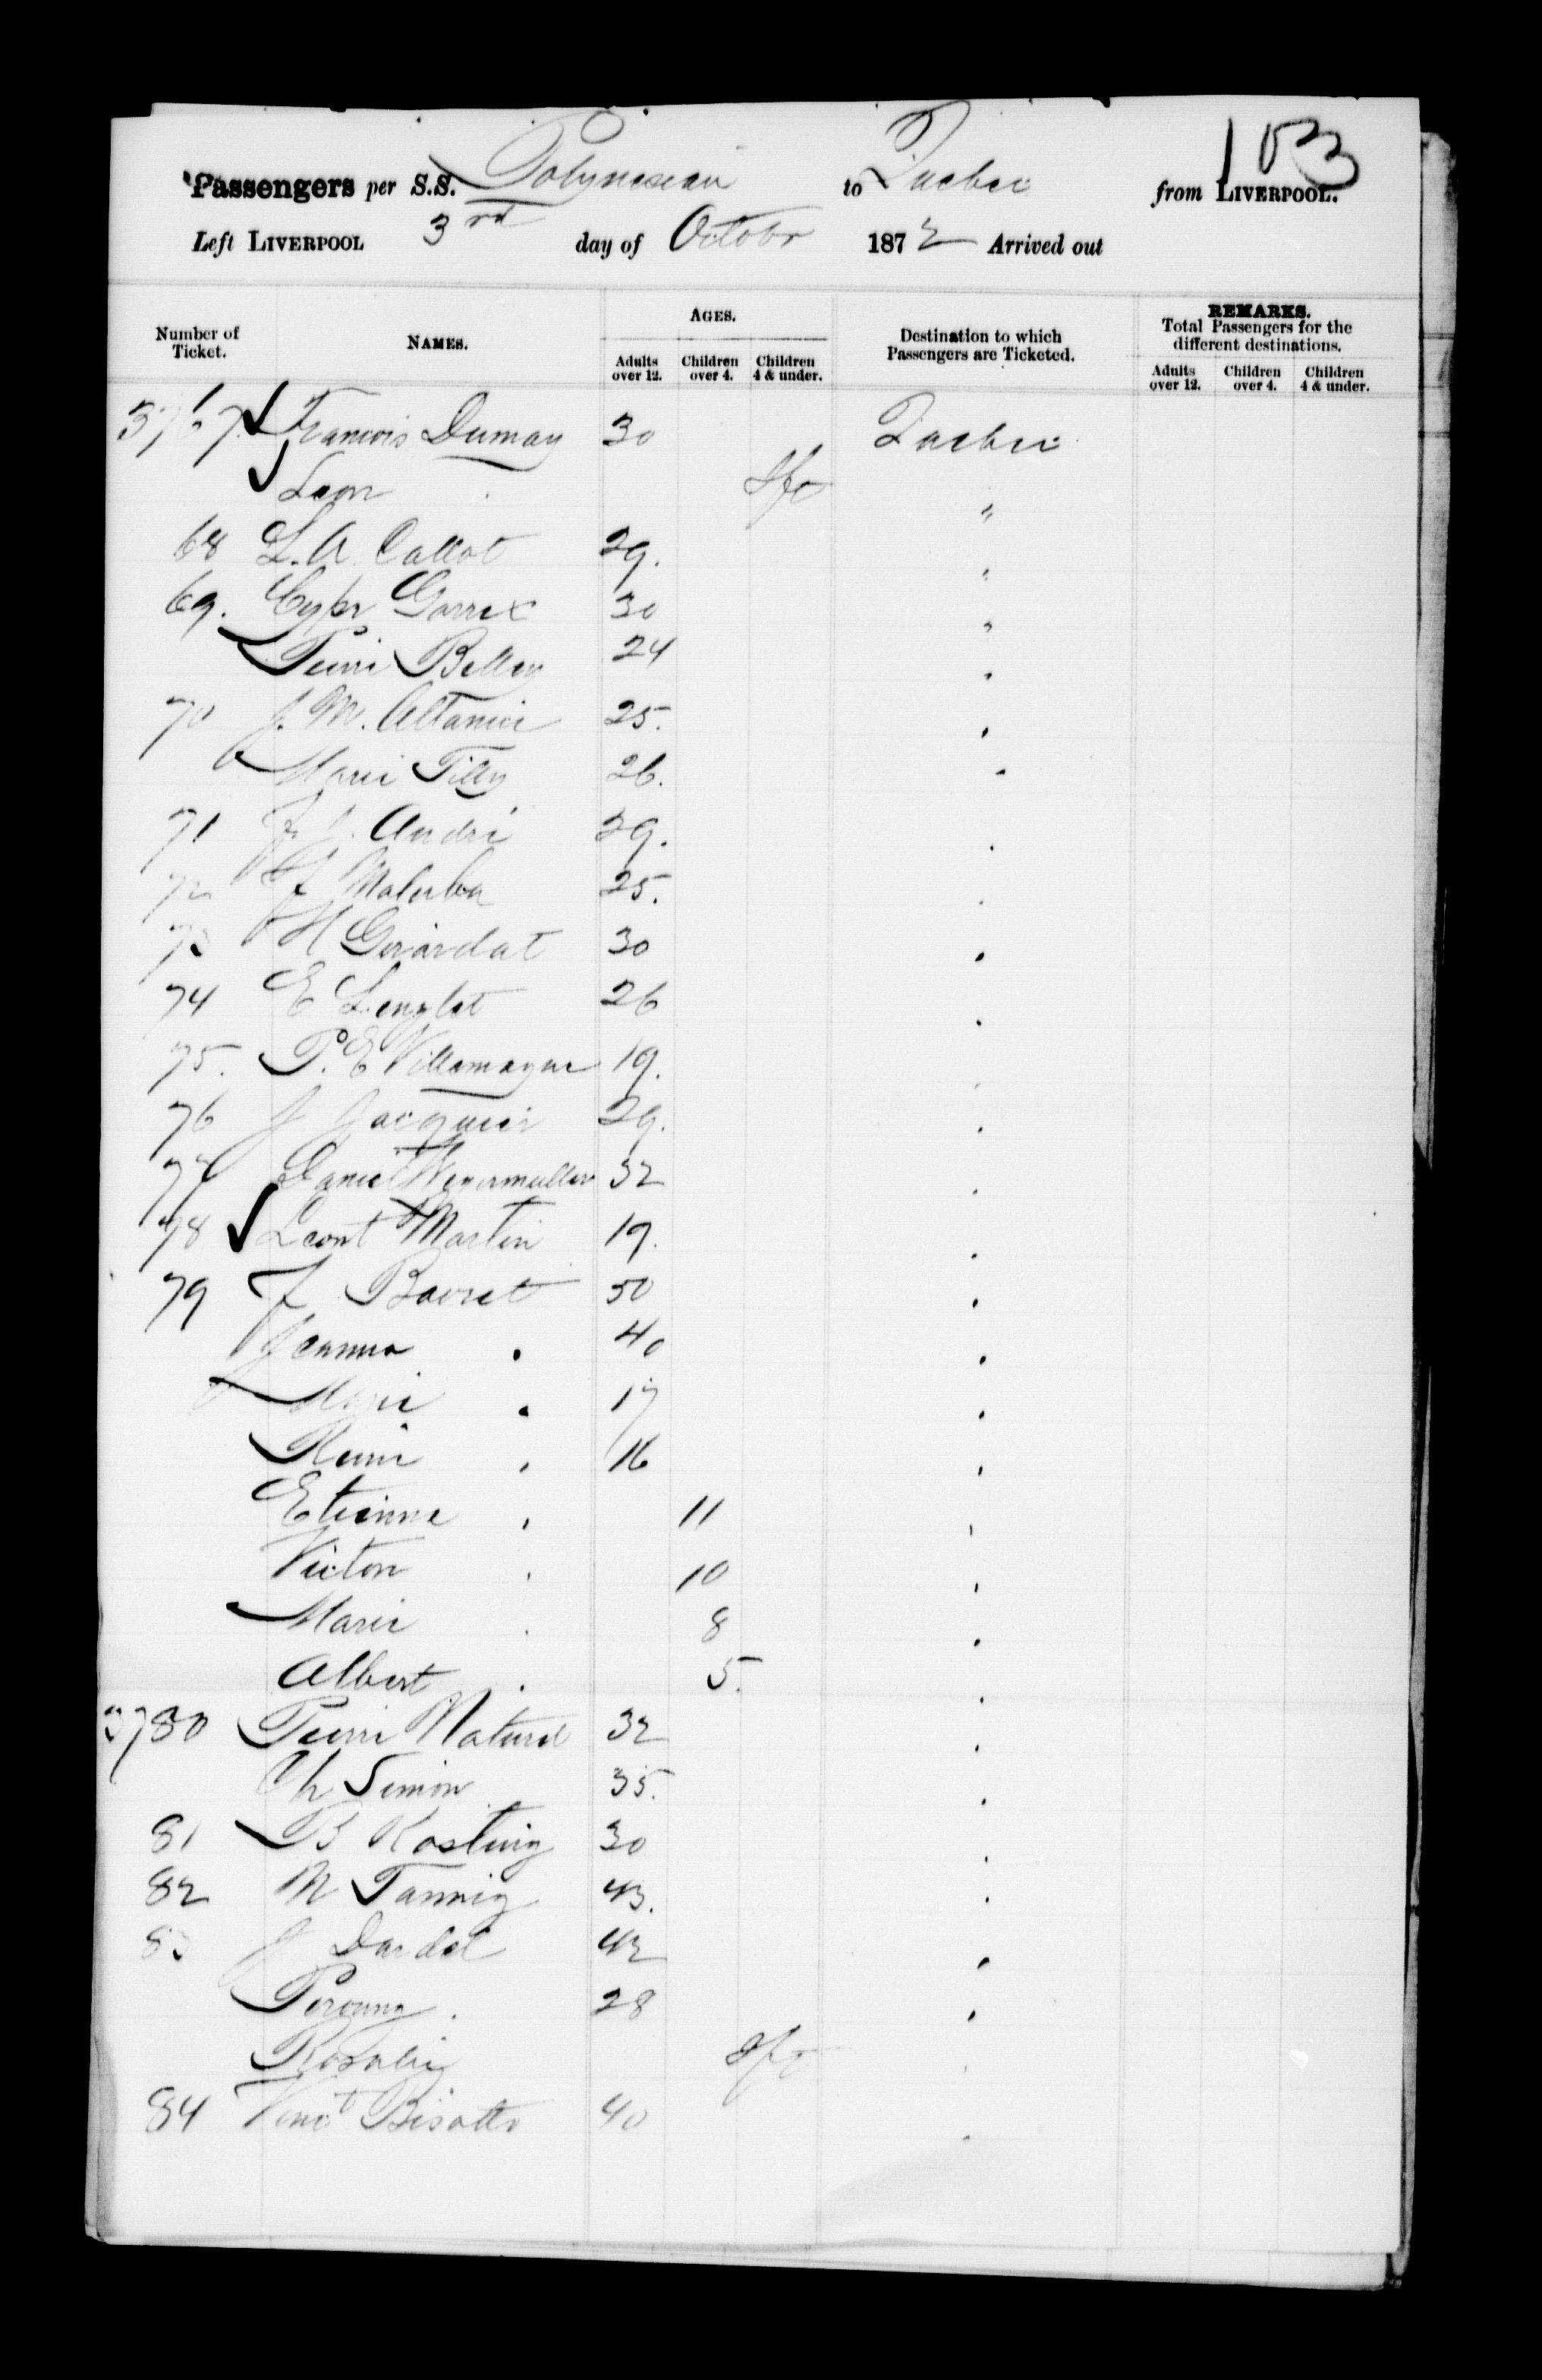 103
Passengers per S.S. Polynesian to Quebec from LIVERPOOL.
Left LIVERPOOL 3rd day of Octobr 1872 Arrived out
Number of Ticket. NAMES. AGES. Destination to which Passengers are Ticketed. REMARKS. Total Passengers for the different destinations.
Adults over 12. Children over 4. Children 4 & under. Adults over 12. Children over 4. Children 4 & under.
3767 Francois Dumay 30 Quebec
Leon Ift "
68 L. A. Callot 29. "
69. Cypr Garrex 30 "
Pierre Belley 24 "
70 J. M. 25. "
Marie Tilly 26. "
71 J. J. André 29. "
72 J Malerba 25. "
73 H Gerardat 30 "
74 E Lenglet 26 "
75. P. E Villemagne 19. "
76 J Jacquier 29. "
77 Daniel Weyermuller 32 "
78 Leont Martin 19. "
79 J Bavret 50 "
Jeanne " 40 "
Marie " 17 "
" 16 "
Etienne " 11 "
Victor " 10 "
Marie " 8 "
Albert " 5. "
3780 Pierre Naturel 32 "
Ch Simon 35. "
81 B Kosting 30 "
82 M Tannig 43. "
83 J Dardel 42 "
" 28 "
Rosalie Ift "
84 Vinct Bisotto 40 "